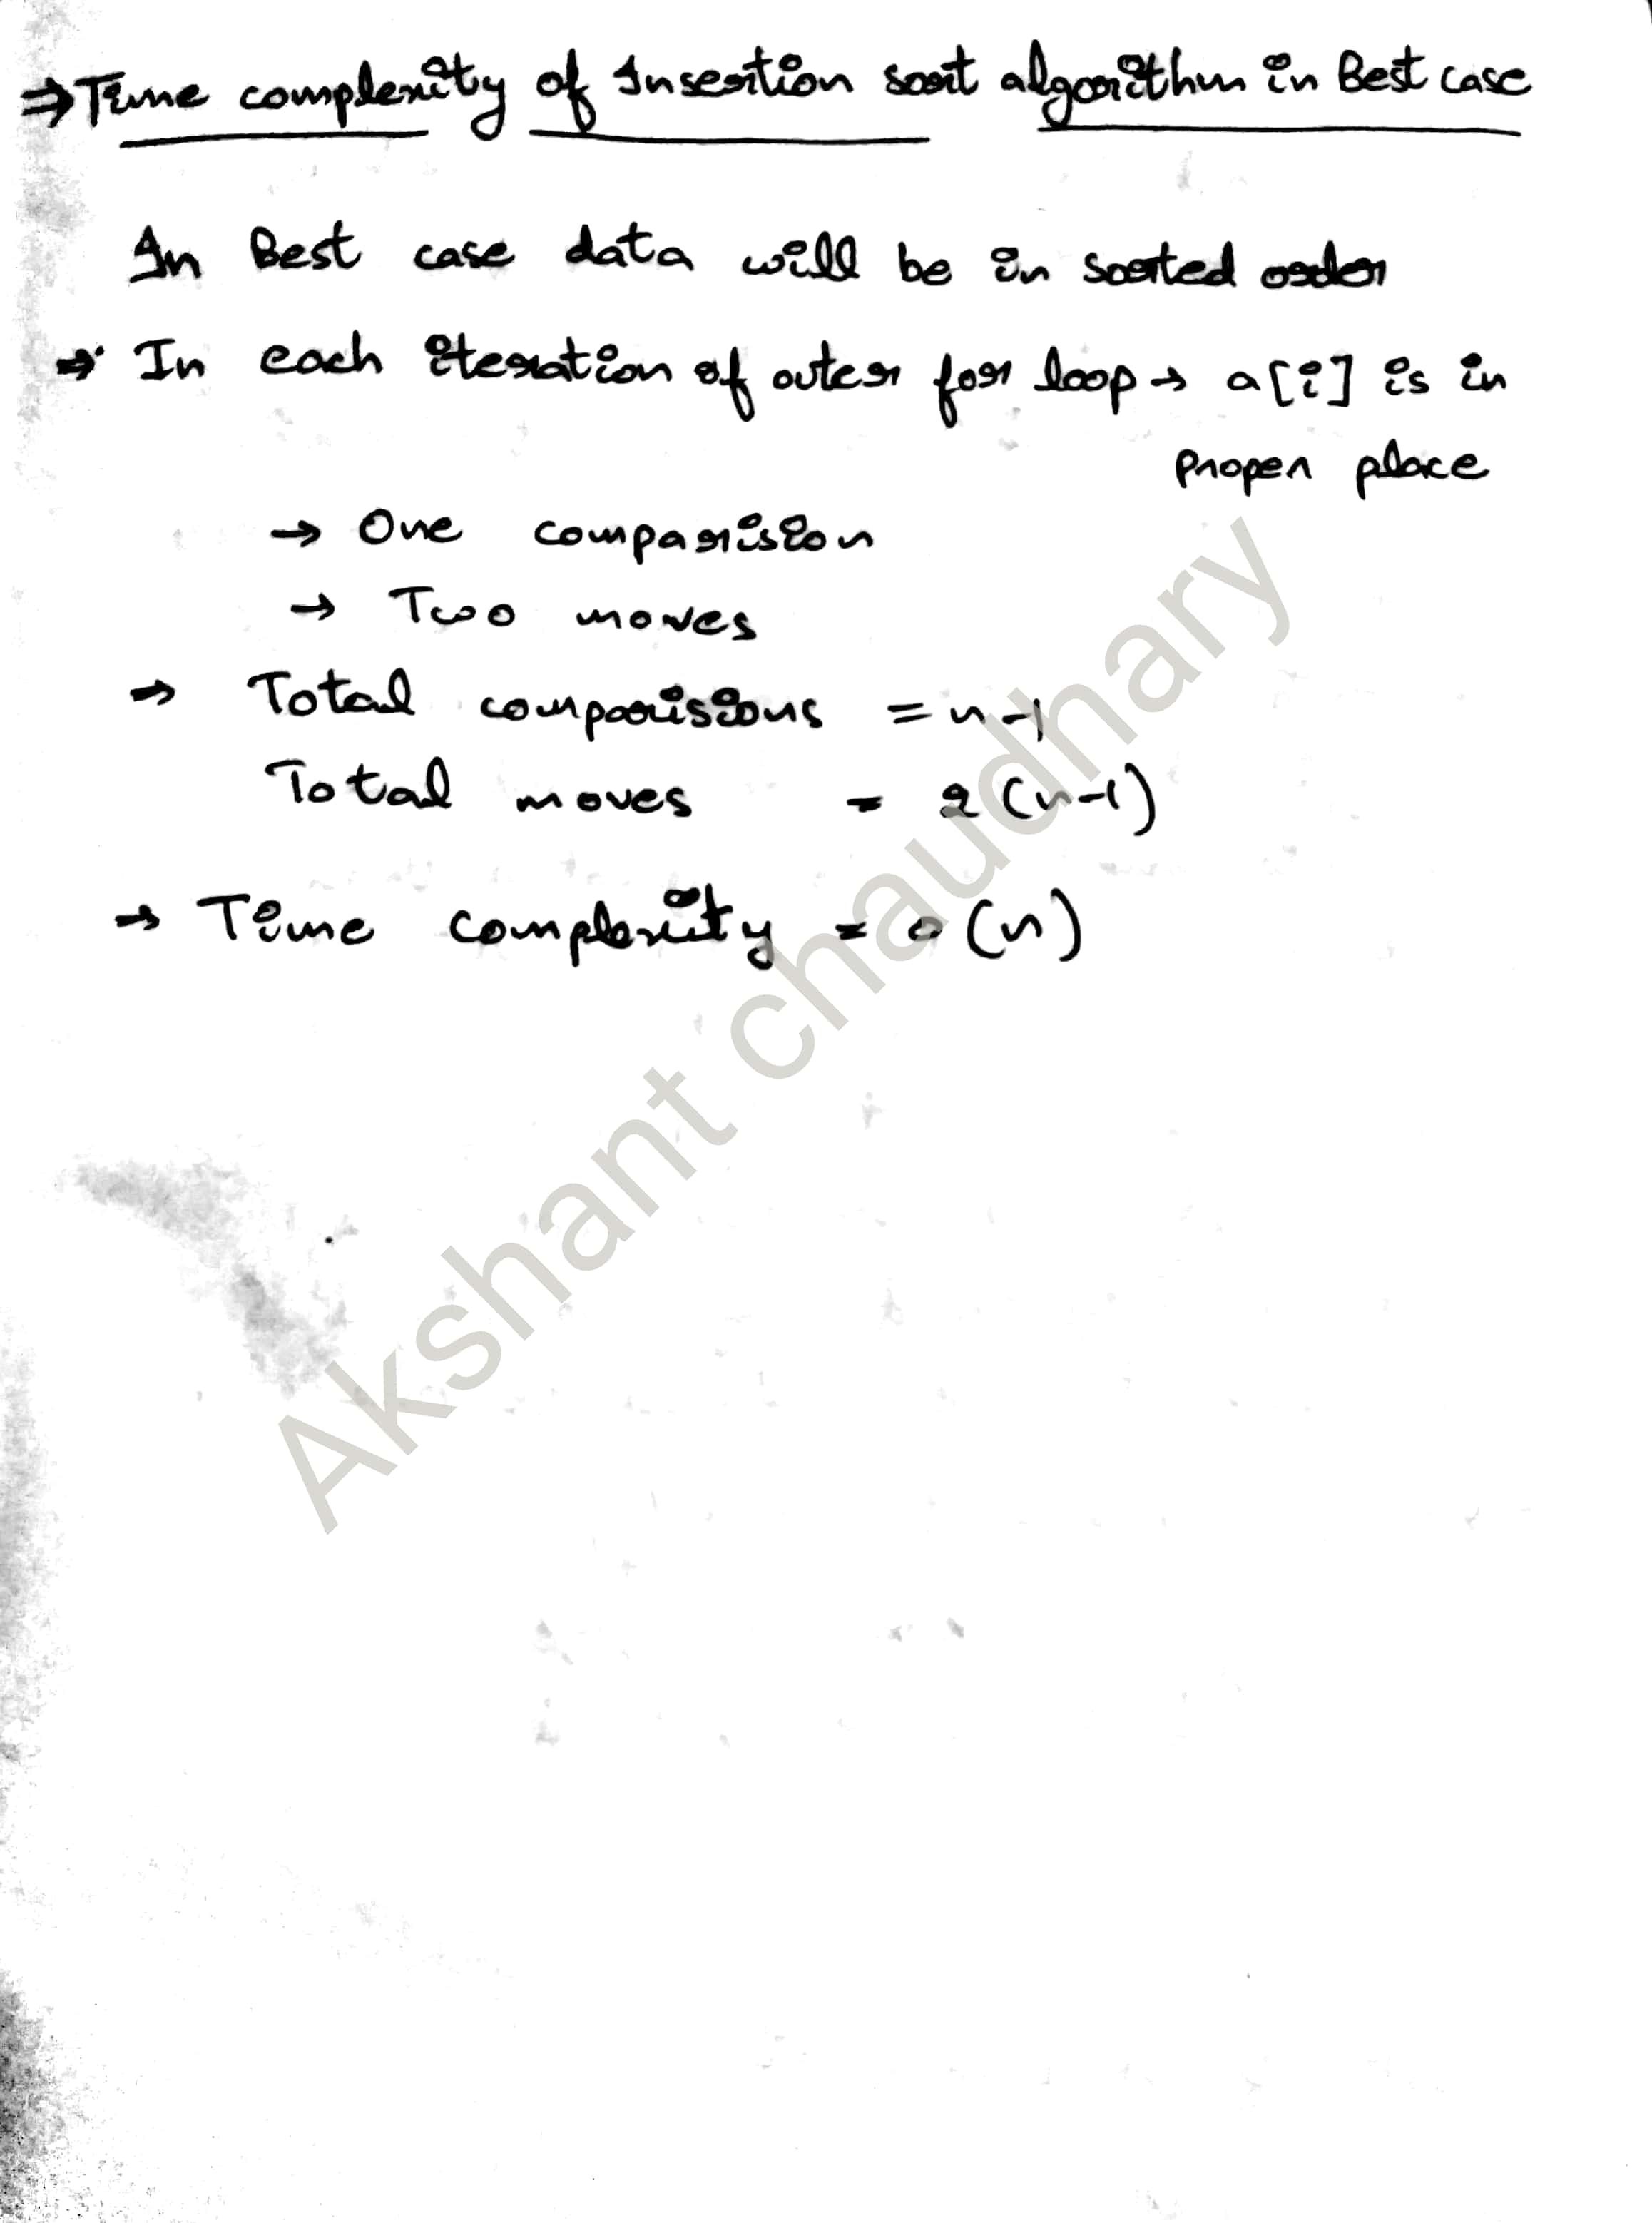 ⇒ Time complexity of Insertion sort algorithm in Best case
In Best case data will be in sorted order
⇒ In each iteration of outer for loop → a[i] is in
proper place
→ One comparision
→ Two moves
⇒ Total comparisions = n-1
Total moves = 2(n-1)
⇒ Time complexity = o(n)
Akshant chaudhary